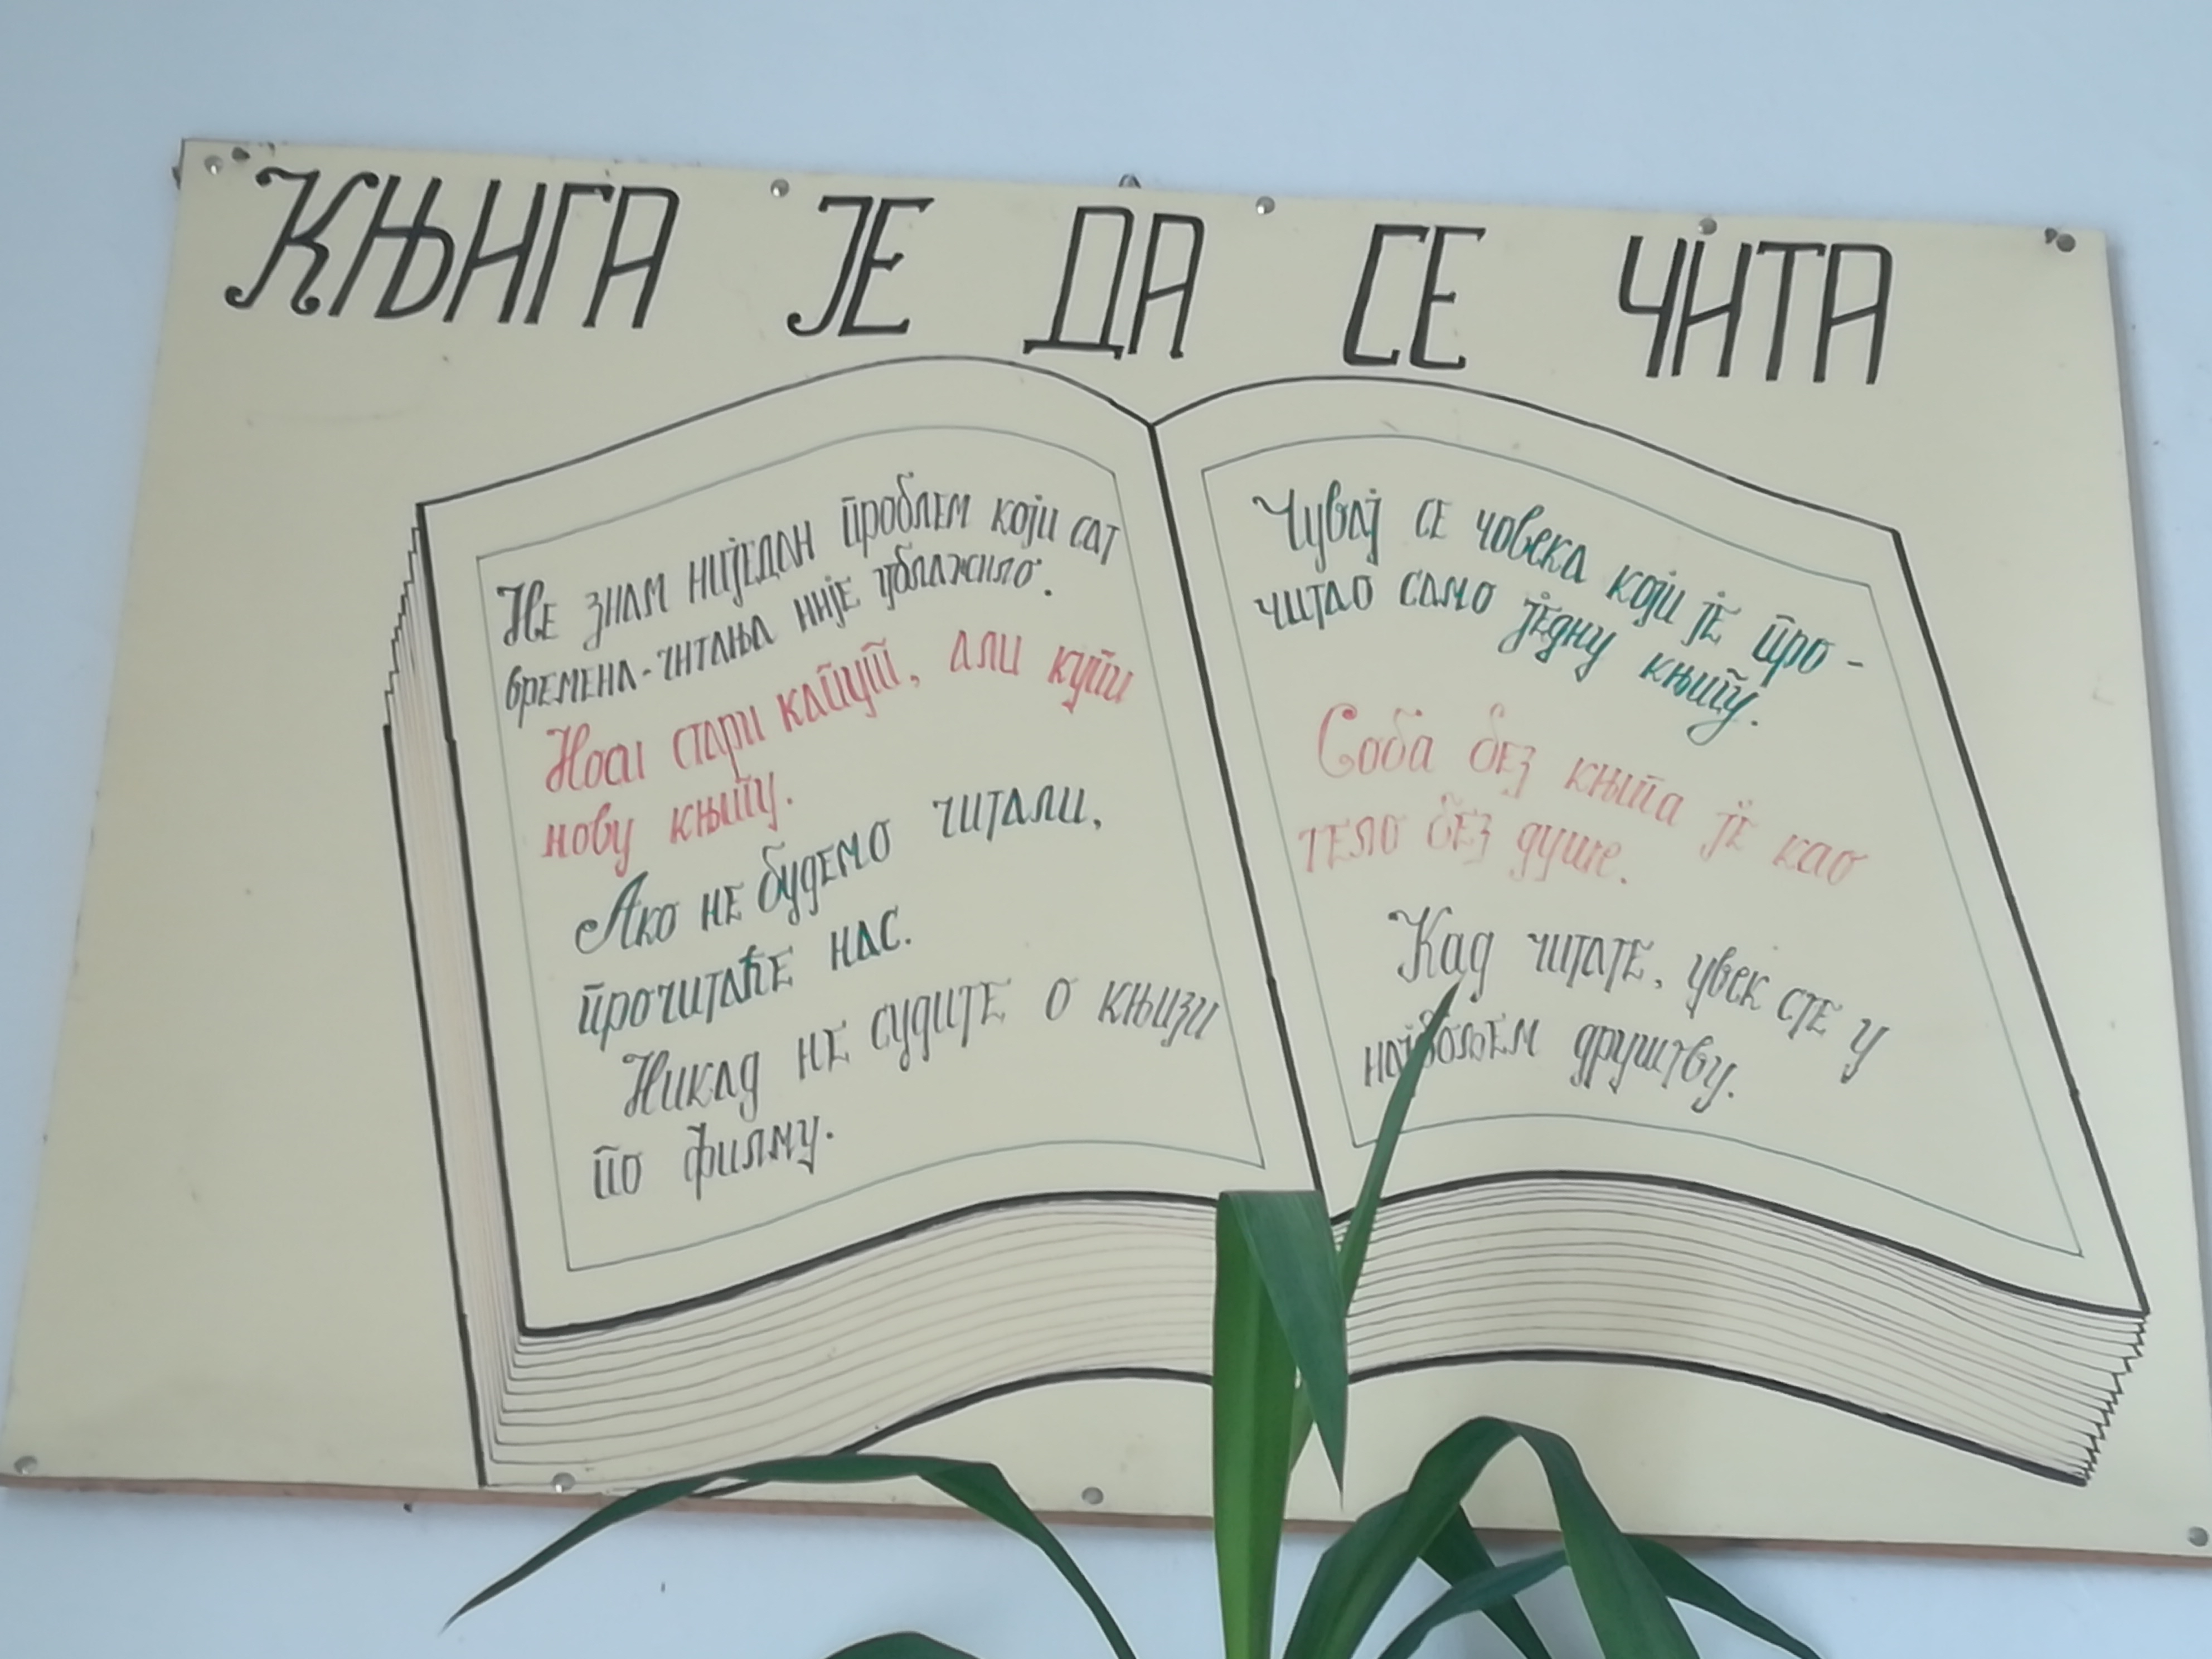 КЊИГА ЈЕ ДА СЕ ЧИТА
Не знам ниједан проблем који сат
времена-читања није ублажило.
Носи стари капут, али купи
нову књигу.
Ако не будемо читали,
прочитаће нас.
Никад не судите о књизи
по филму.
Чувај се човека који је про-
читао само једну књигу.
Соба без књига је као
тело без душе.
Кад читате, увек сте у
најбољем друштву.